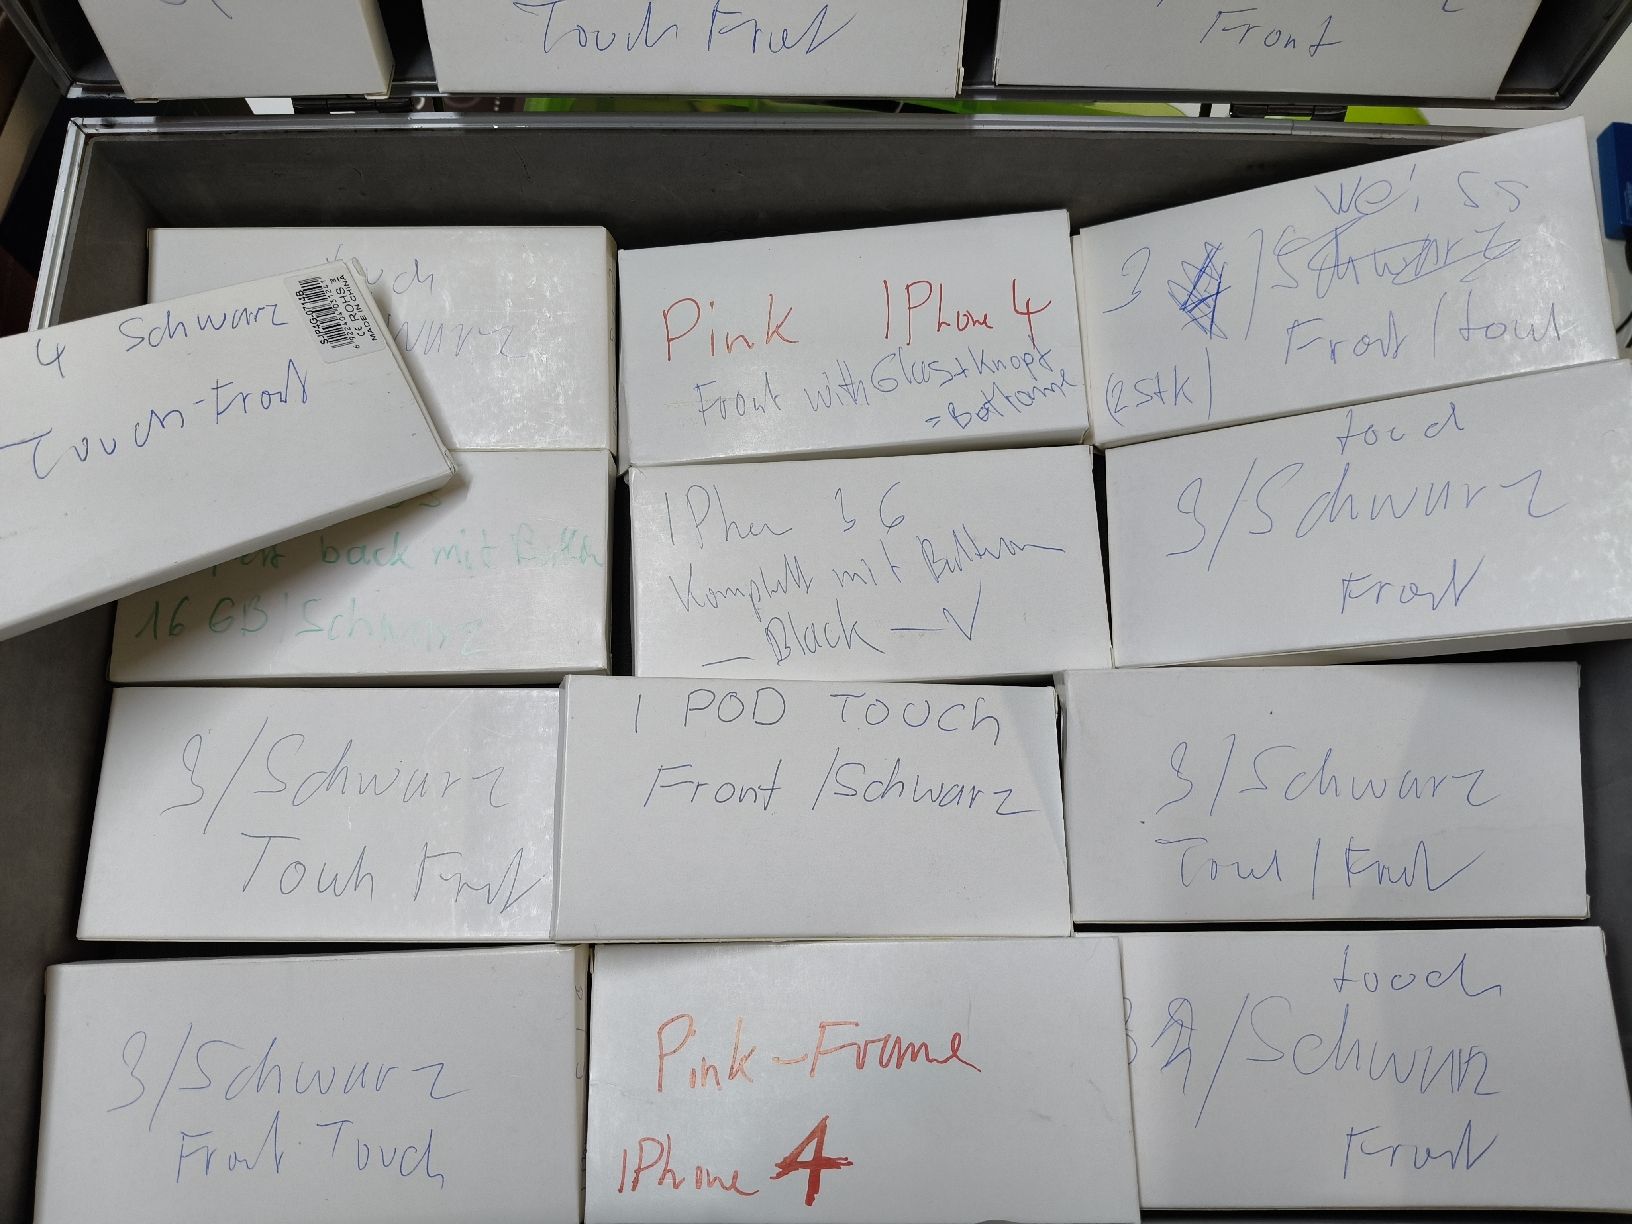 Touch Front
Front
4 Schwarz
Touch-Front
MADE IN CHINA
CE ROHS
Pink IPhone 4
Front with Glas + Knopf
= Bottome
Weiss
3 / Schwarz
Front / touch
(2 Stk)
back mit
16 GB / Schwarz
IPhon 3G
Komplett mit Buttom
— Black — V
touch
3 / Schwarz
Front
3 / Schwarz
Touch Front
I POD TOUCH
Front / Schwarz
3 / Schwarz
Touch / Front
3 / Schwarz
Front Touch
Pink-Frame
IPhone 4
touch
3 / Schwarz
Front